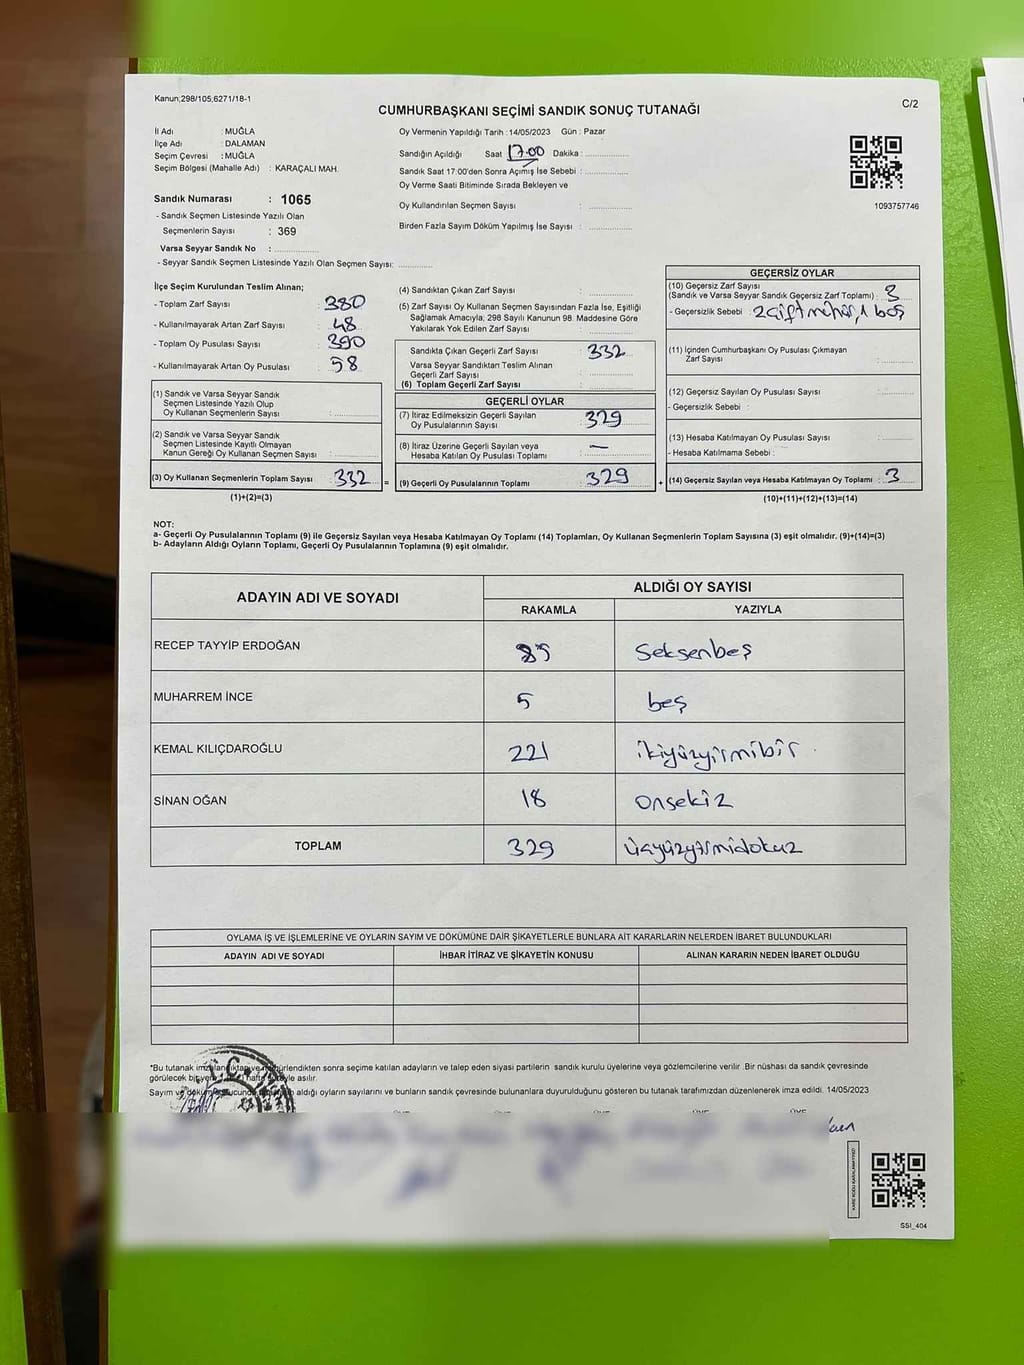 Kanun;298/105;6271/18-1
CUMHURBAŞKANI SEÇİMİ SANDIK SONUÇ TUTANAĞI
C/2
İl Adı : MUĞLA
İlçe Adı : DALAMAN
Seçim Çevresi : MUĞLA
Seçim Bölgesi (Mahalle Adı) : KARAÇALI MAH.
Sandık Numarası : 1065
- Sandık Seçmen Listesinde Yazılı Olan
Seçmenlerin Sayısı : 369
Varsa Seyyar Sandık No :
- Seyyar Sandık Seçmen Listesinde Yazılı Olan Seçmen Sayısı:
Oy Vermenin Yapıldığı Tarih : 14/05/2023 Gün : Pazar
Sandığın Açıldığı Saat 17.00 Dakika :
Sandık Saat 17:00'den Sonra Açılmış İse Sebebi :
Oy Verme Saati Bitiminde Sırada Bekleyen ve
Oy Kullandırılan Seçmen Sayısı :
Birden Fazla Sayım Döküm Yapılmış İse Sayısı :
1093757746
İlçe Seçim Kurulundan Teslim Alınan;
- Toplam Zarf Sayısı : 380
- Kullanılmayarak Artan Zarf Sayısı : 48
- Toplam Oy Pusulası Sayısı : 390
- Kullanılmayarak Artan Oy Pusulası : 58
(1) Sandık ve Varsa Seyyar Sandık
Seçmen Listesinde Yazılı Olup
Oy Kullanan Seçmenlerin Sayısı :
(2) Sandık ve Varsa Seyyar Sandık
Seçmen Listesinde Kayıtlı Olmayan
Kanun Gereği Oy Kullanan Seçmen Sayısı :
(3) Oy Kullanan Seçmenlerin Toplam Sayısı : 332
(1)+(2)=(3)
(4) Sandıktan Çıkan Zarf Sayısı :
(5) Zarf Sayısı Oy Kullanan Seçmen Sayısından Fazla İse, Eşitliği
Sağlamak Amacıyla; 298 Sayılı Kanunun 98. Maddesine Göre
Yakılarak Yok Edilen Zarf Sayısı :
Sandıkta Çıkan Geçerli Zarf Sayısı : 332
Varsa Seyyar Sandıktan Teslim Alınan
Geçerli Zarf Sayısı :
(6) Toplam Geçerli Zarf Sayısı :
GEÇERLİ OYLAR
(7) İtiraz Edilmeksizin Geçerli Sayılan
Oy Pusulalarının Sayısı : 329
(8) İtiraz Üzerine Geçerli Sayılan veya
Hesaba Katılan Oy Pusulası Toplamı : —
(9) Geçerli Oy Pusulalarının Toplamı : 329
GEÇERSİZ OYLAR
(10) Geçersiz Zarf Sayısı
(Sandık ve Varsa Seyyar Sandık Geçersiz Zarf Toplamı) : 3
- Geçersizlik Sebebi : 2 çift mühür, 1 boş
(11) İçinden Cumhurbaşkanı Oy Pusulası Çıkmayan
Zarf Sayısı :
(12) Geçersiz Sayılan Oy Pusulası Sayısı :
- Geçersizlik Sebebi :
(13) Hesaba Katılmayan Oy Pusulası Sayısı :
- Hesaba Katılmama Sebebi :
(14) Geçersiz Sayılan veya Hesaba Katılmayan Oy Toplamı : 3
(10)+(11)+(12)+(13)=(14)
NOT:
a- Geçerli Oy Pusulalarının Toplamı (9) ile Geçersiz Sayılan veya Hesaba Katılmayan Oy Toplamı (14) Toplamları, Oy Kullanan Seçmenlerin Toplam Sayısına (3) eşit olmalıdır. (9)+(14)=(3)
b- Adayların Aldığı Oyların Toplamı, Geçerli Oy Pusulalarının Toplamına (9) eşit olmalıdır.
ADAYIN ADI VE SOYADI
ALDIĞI OY SAYISI
RAKAMLA YAZIYLA
RECEP TAYYİP ERDOĞAN 85 seksenbeş
MUHARREM İNCE 5 beş
KEMAL KILIÇDAROĞLU 221 ikiyüzyirmibir
SİNAN OĞAN 18 onsekiz
TOPLAM 329 üçyüzyirmidokuz
OYLAMA İŞ VE İŞLEMLERİNE VE OYLARIN SAYIM VE DÖKÜMÜNE DAİR ŞİKAYETLERLE BUNLARA AİT KARARLARIN NELERDEN İBARET BULUNDUKLARI
ADAYIN ADI VE SOYADI İHBAR İTİRAZ VE ŞİKAYETİN KONUSU ALINAN KARARIN NEDEN İBARET OLDUĞU
*Bu tutanak sonra seçime katılan adayların ve talep eden siyasi partilerin sandık kurulu üyelerine veya gözlemcilerine verilir. Bir nüshası da sandık çevresinde
görülecek bir asılır.
Sayım ve aldığı oyların sayılarını ve bunların sandık çevresinde bulunanlara duyurulduğunu gösteren bu tutanak tarafımızdan düzenlenerek imza edildi. 14/05/2023
SSI_404